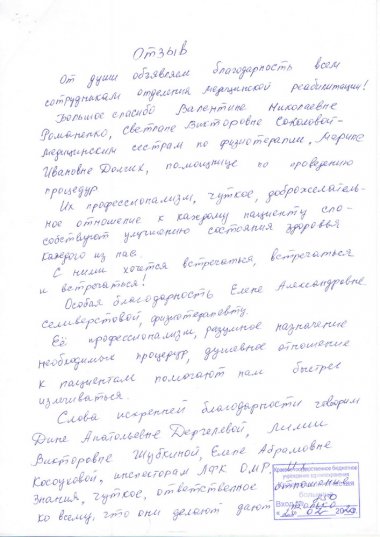 Отзыв
От души объявляем благодарность всем
сотрудникам отделения медицинской реабилитации!
Большое спасибо Валентине Николаевне
Романенко, Светлане Викторовне Соколовой-
медицинским сестрам по физиотерапии, Марине
Ивановне Долгих, помощнице по проведению
процедур
Их профессионализм, чуткое, доброжелатель-
ное отношение к каждому пациенту спо-
собствуют улучшению состояния здоровья
каждого из нас.
С ними хочется встречаться, встречаться
и встречаться!
Особая благодарность Елене Александровне
Селиверстовой, физиотерапевту.
Её профессионализм, разумное назначение
необходимых процедур, душевное отношение
к пациентам помогают нам быстрее
излечиваться.
Слова искренней благодарности говорим
Дине Анатольевне Дергелевой, Лилии
Викторовне Шубкиной, Елене Абрамовне
Косоуховой, инспекторам ЛФК ОМР. Их
знания, чуткое, ответственное отношение
ко всему, что они делают дают только